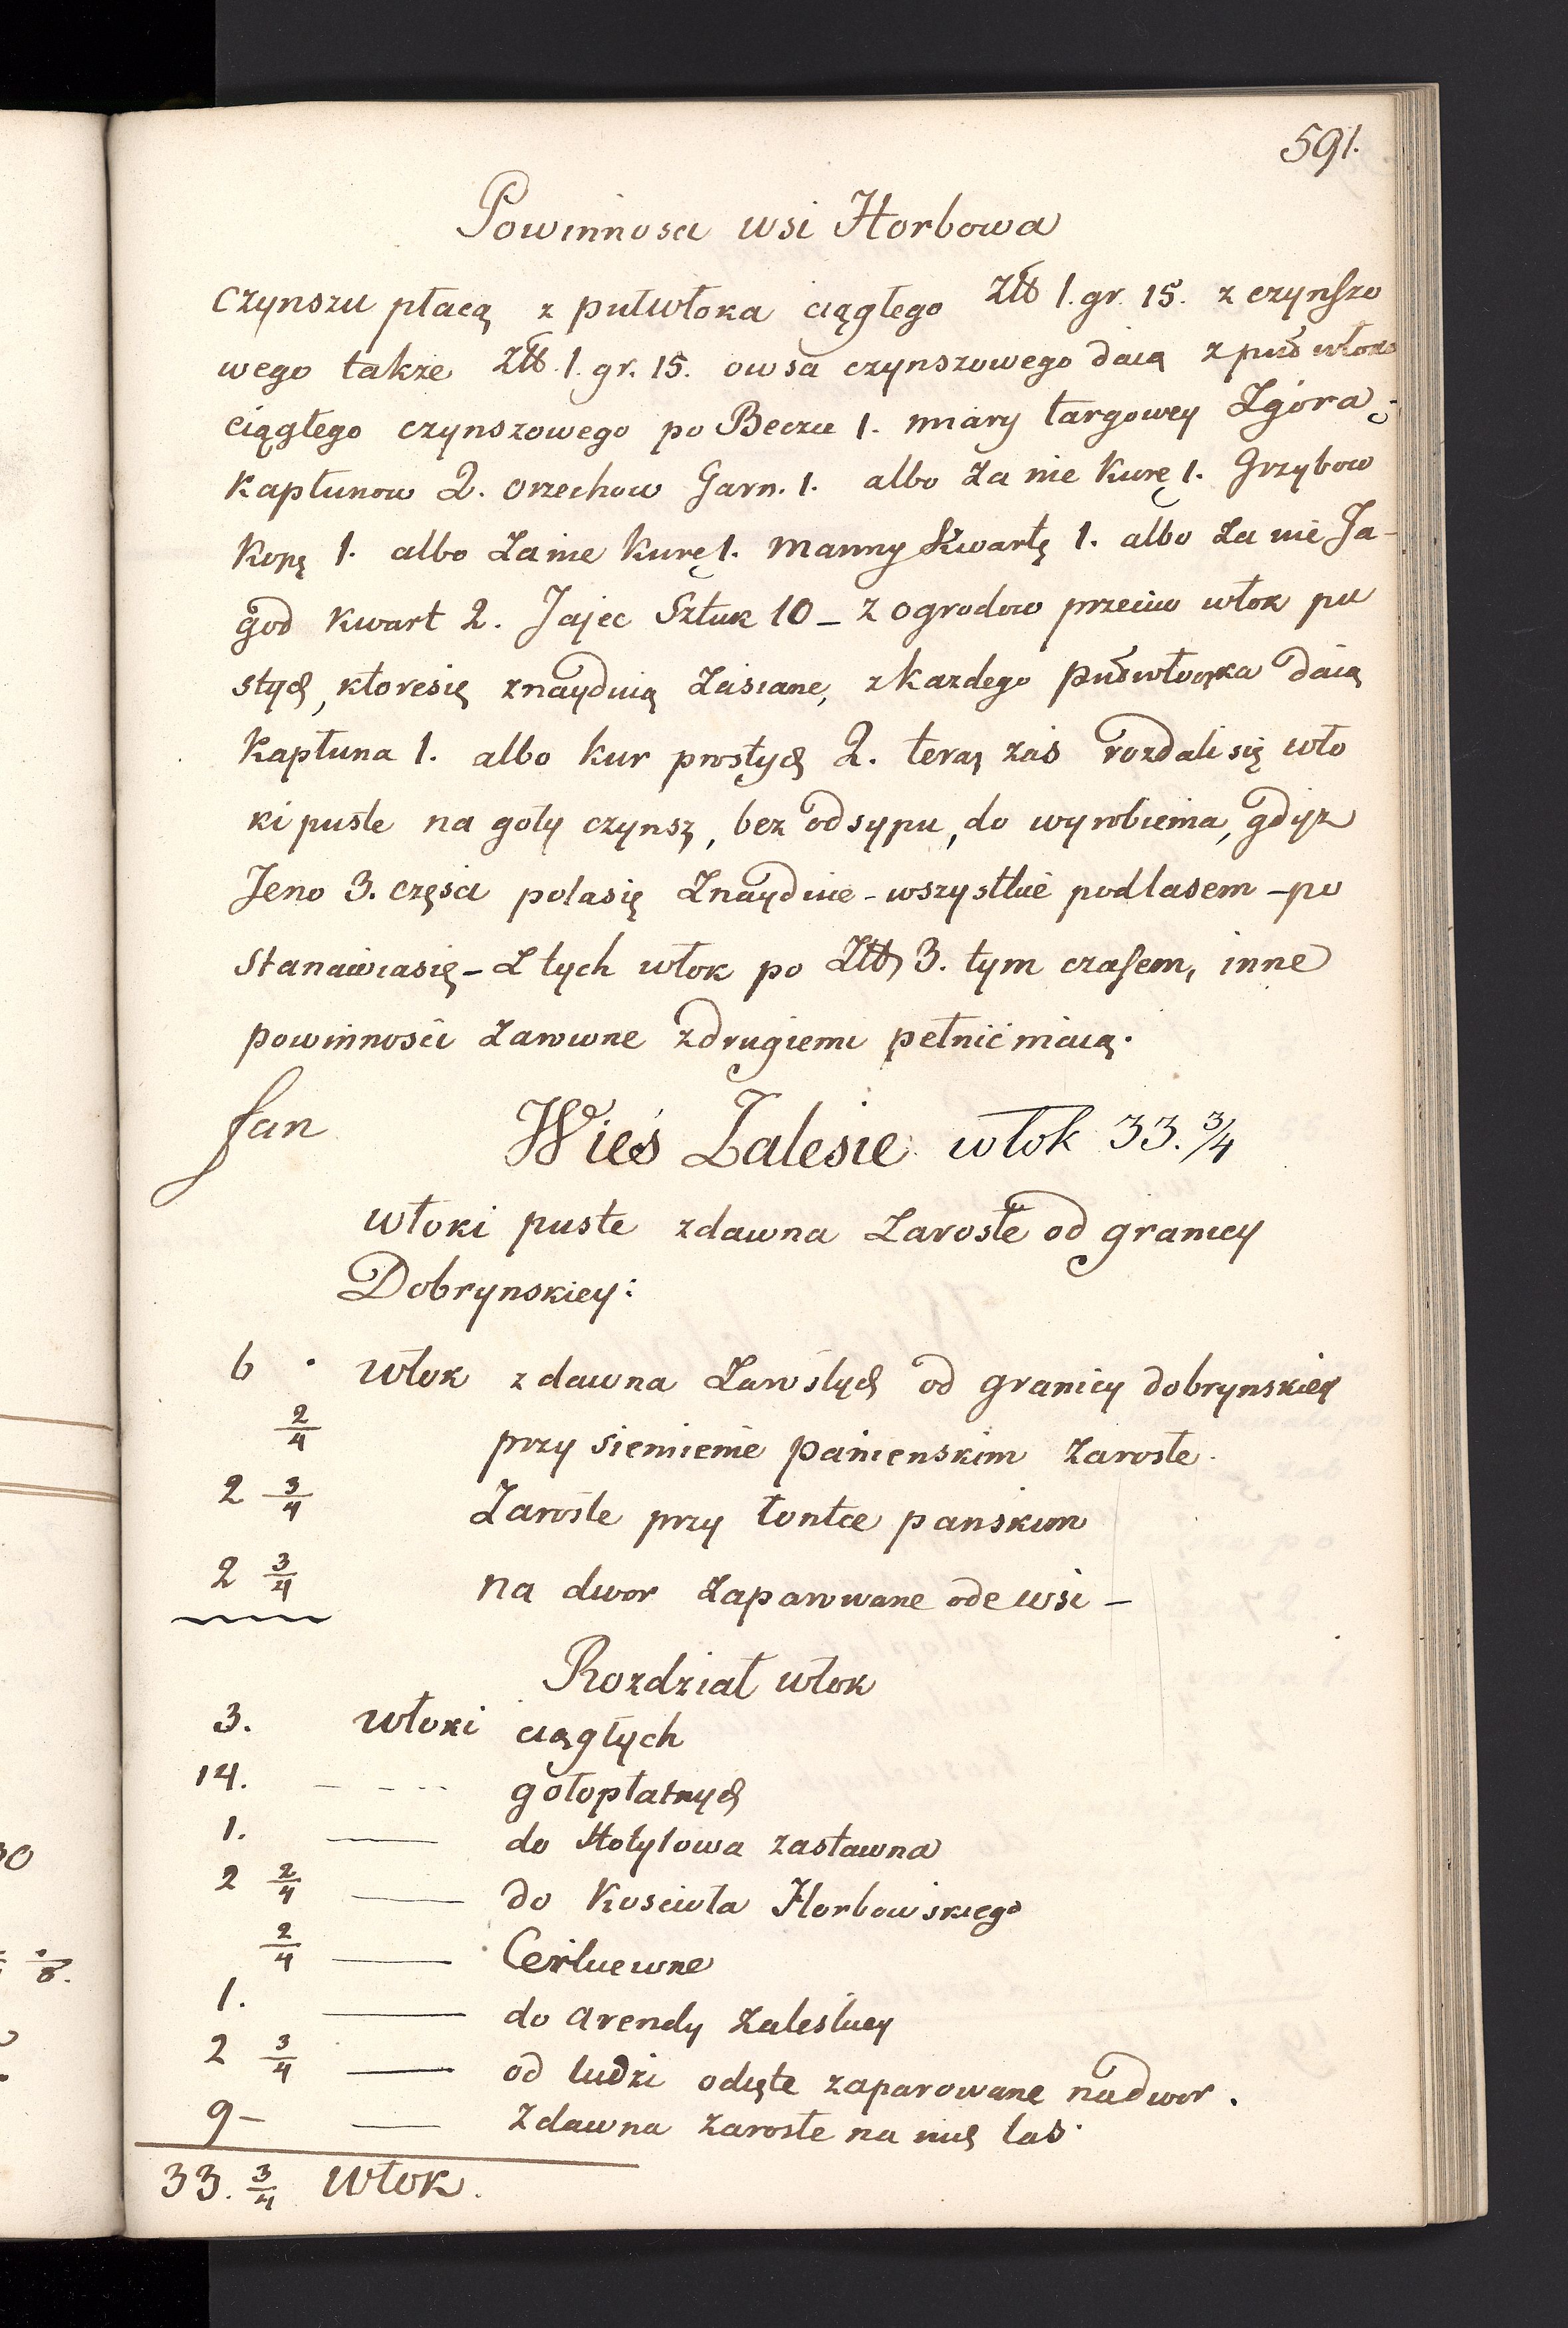 591.
Powinnosci wsi Horbowa
czynszu płacą z pułwłoka ciągłego Złł 1. gr. 15. z czynszo
wego takze Złł. 1. gr. 15. owsa czynszowego daią z puł włoka
ciągłego czynszowego po Beczce 1. miary targowey Zgórą;
Kapłunow 2. orzechow Garn. 1. albo za nie Kurę 1. Grzybow
Kopę 1. albo zanie Kurę 1. Manny Kwartę 1. albo za nie Ja-
god kwart 2. Jajec Sztuk 10 – z ogrodow przeciw włok pu
stych, ktoresię znayduią zasiane, z kazdego pułwłoczka daią
Kapłuna 1. albo kur prostych 2. teraz zas rozdali się wło
ki puste na goły czynsz, bez odsypu, do wyrobienia, gdyz
Jeno 3. części polasię znayduie – wszystkie podlasem – po
stanawiasię – z tych włok po Złł 3. tym czasem, inne
powinnosci zarowne zdrugiemi pełnić maią.
fan Wieś Zalesie włok 33. 3/4
włoki puste zdawna zarosłe od granicy
Dobrynskiey:
6 . włok zdawna zarosłych od granicy dobrynskiey
2/4 przy siemienie panienskim zarosłe.
2 3/4 Zarosłe przy łontce panskim
2 3/4 na dwor zaparowane ode wsi –
Rozdział włok
3. włoki ciągłych
14. – - - - gołopłatnych
1. — do Hotylowa zastawna
2 2/4 — do Koscioła Horbowskiego
2/4 — Cerkiewne
1. — do arendy zaleskiey
2 3/4 — od ludzi odięte zaparowane nadwor.
9 – — Zdawna zarosłe na nich las.
33. 3/4 włok.